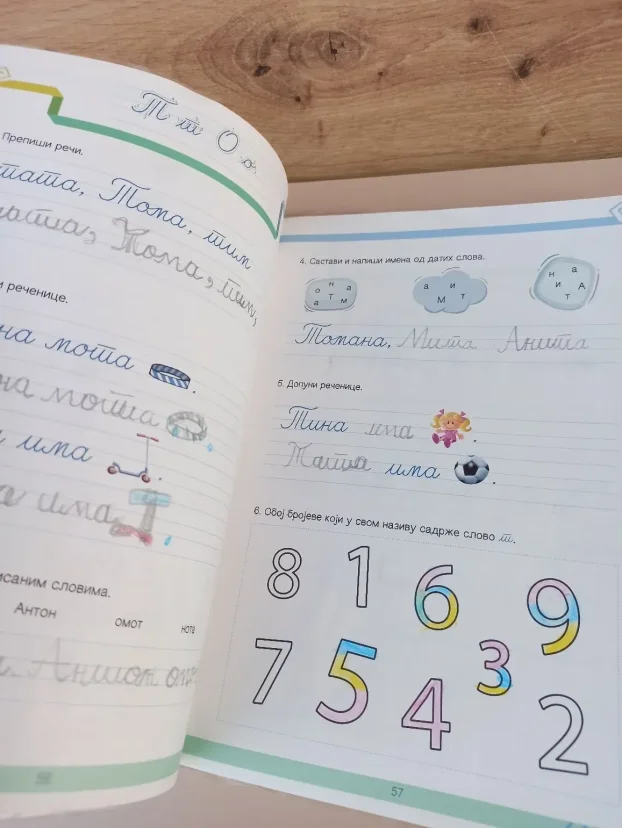 Т т О о
Препиши речи.
тата, Тома, тим
Тома, тим,
реченице.
на мота
на мота
има
а има
писаним словима.
Антон омот нота
Антон
4. Састави и напиши имена од датих слова.
о н а т а м
а и М т
н а и А т
Томана, Мита Анита
5. Допуни реченице.
Тина има .
Таша има .
6. Обој бројеве који у свом називу садрже слово т.
8 1 6 9
7 5 4 3 2
57